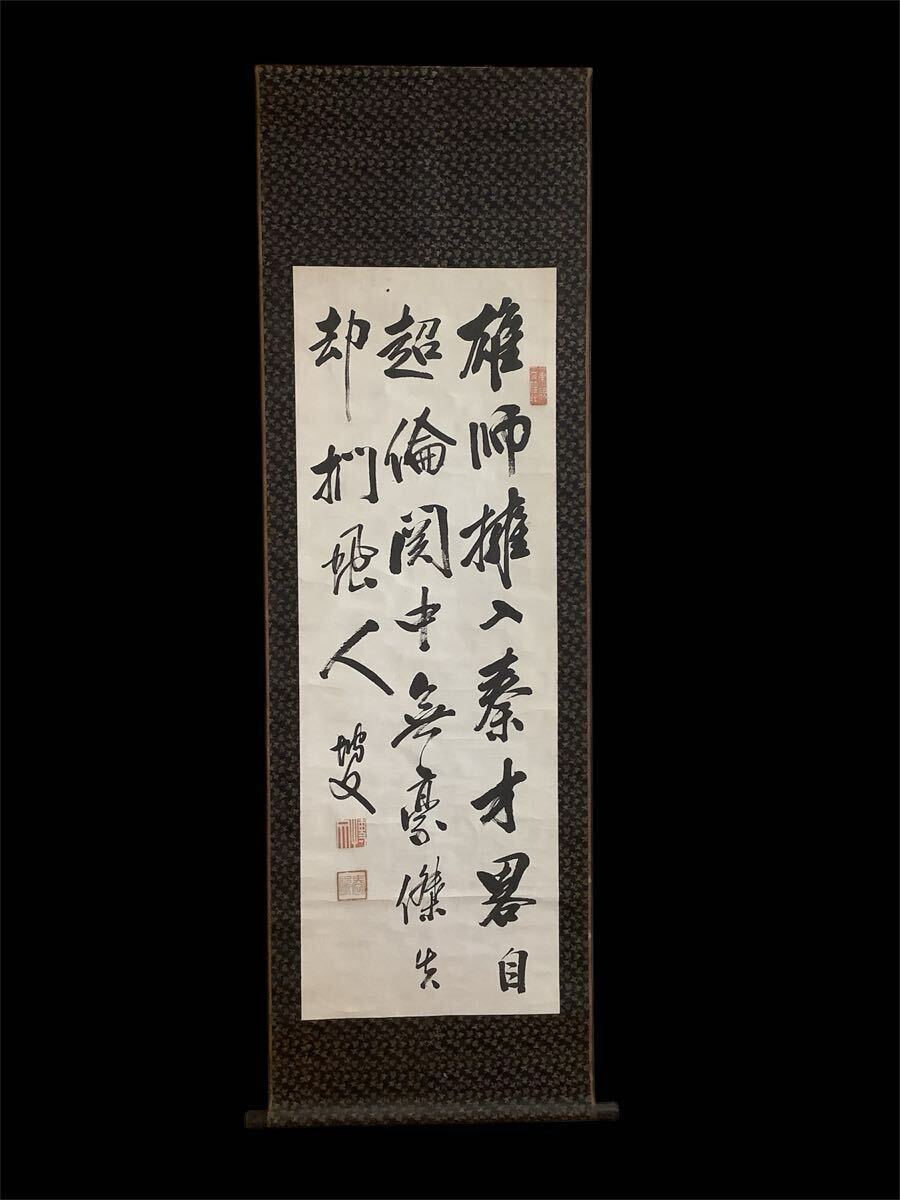 雄師擁入秦才畧自
超倫関中無豪傑失
却捫虱人